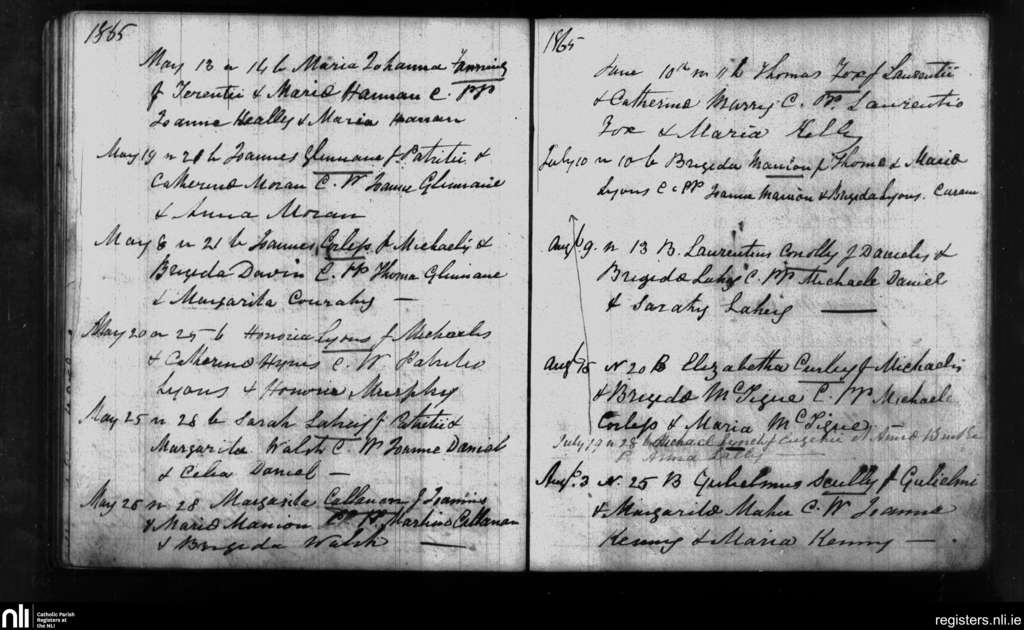 1865
May 13 n 14 b Maria Johanna Fanning
f Terentii & Maria Hannan C. PP
Joanne Healley & Maria Hanan
May 19 n 21 b Joannes Glinnane f Patritii &
Catherina Moran C. W Joanne Glinnane
& Anna Moran
May 6 n 21 b Joannes Corless f Michaelis &
Brigeda Davin C. PP Thoma Glinnane
& Margarita Couraby —
May 20 n 25 b Honoria Lyons f Michaelis
& Catherina Hynes C W Patritio
Lyons & Honoria Murphy
May 25 n 28 b Sarah Laheiff f Patritii &
Margarita Walsh C W Joanne Daniel
& Celia Daniel —
May 26 n 28 Margarita Callanan f Joannis
& Maria Manion C PP Martino Callanan
& Brigeda Walsh —
1865
June 10th n 11 b Thomas Fox f Laurentii
& Catherina Murry C. PP. Laurentio
Fox & Maria Kelly
July 10 n 10 b Brigeda Manion f Thoma & Maria
Lyons C. PP Joanne Manion & Brigeda Lyons. Curam
Augt 9. n 13 B. Laurentius Conolly f Danielis &
Brigeda Lahey C. PP Michaele Daniel
& Sarah Laheiy —
Augt 15 N 20 B Elizabetha Curley f Michaelis
& Brigeda McTigue C. PP Michaele
Corless & Maria McTigue
July 19 n 28 b Michael Lynch f Eugenii et Anna Burke
P. Anna
Augt. 3 N. 25 B Gulielmus Scully f Gulielmi
& Margarita Maher C. W Joanne
Kenny & Maria Kenny —
nli
Catholic Parish
Registers at
the NLI
registers.nli.ie